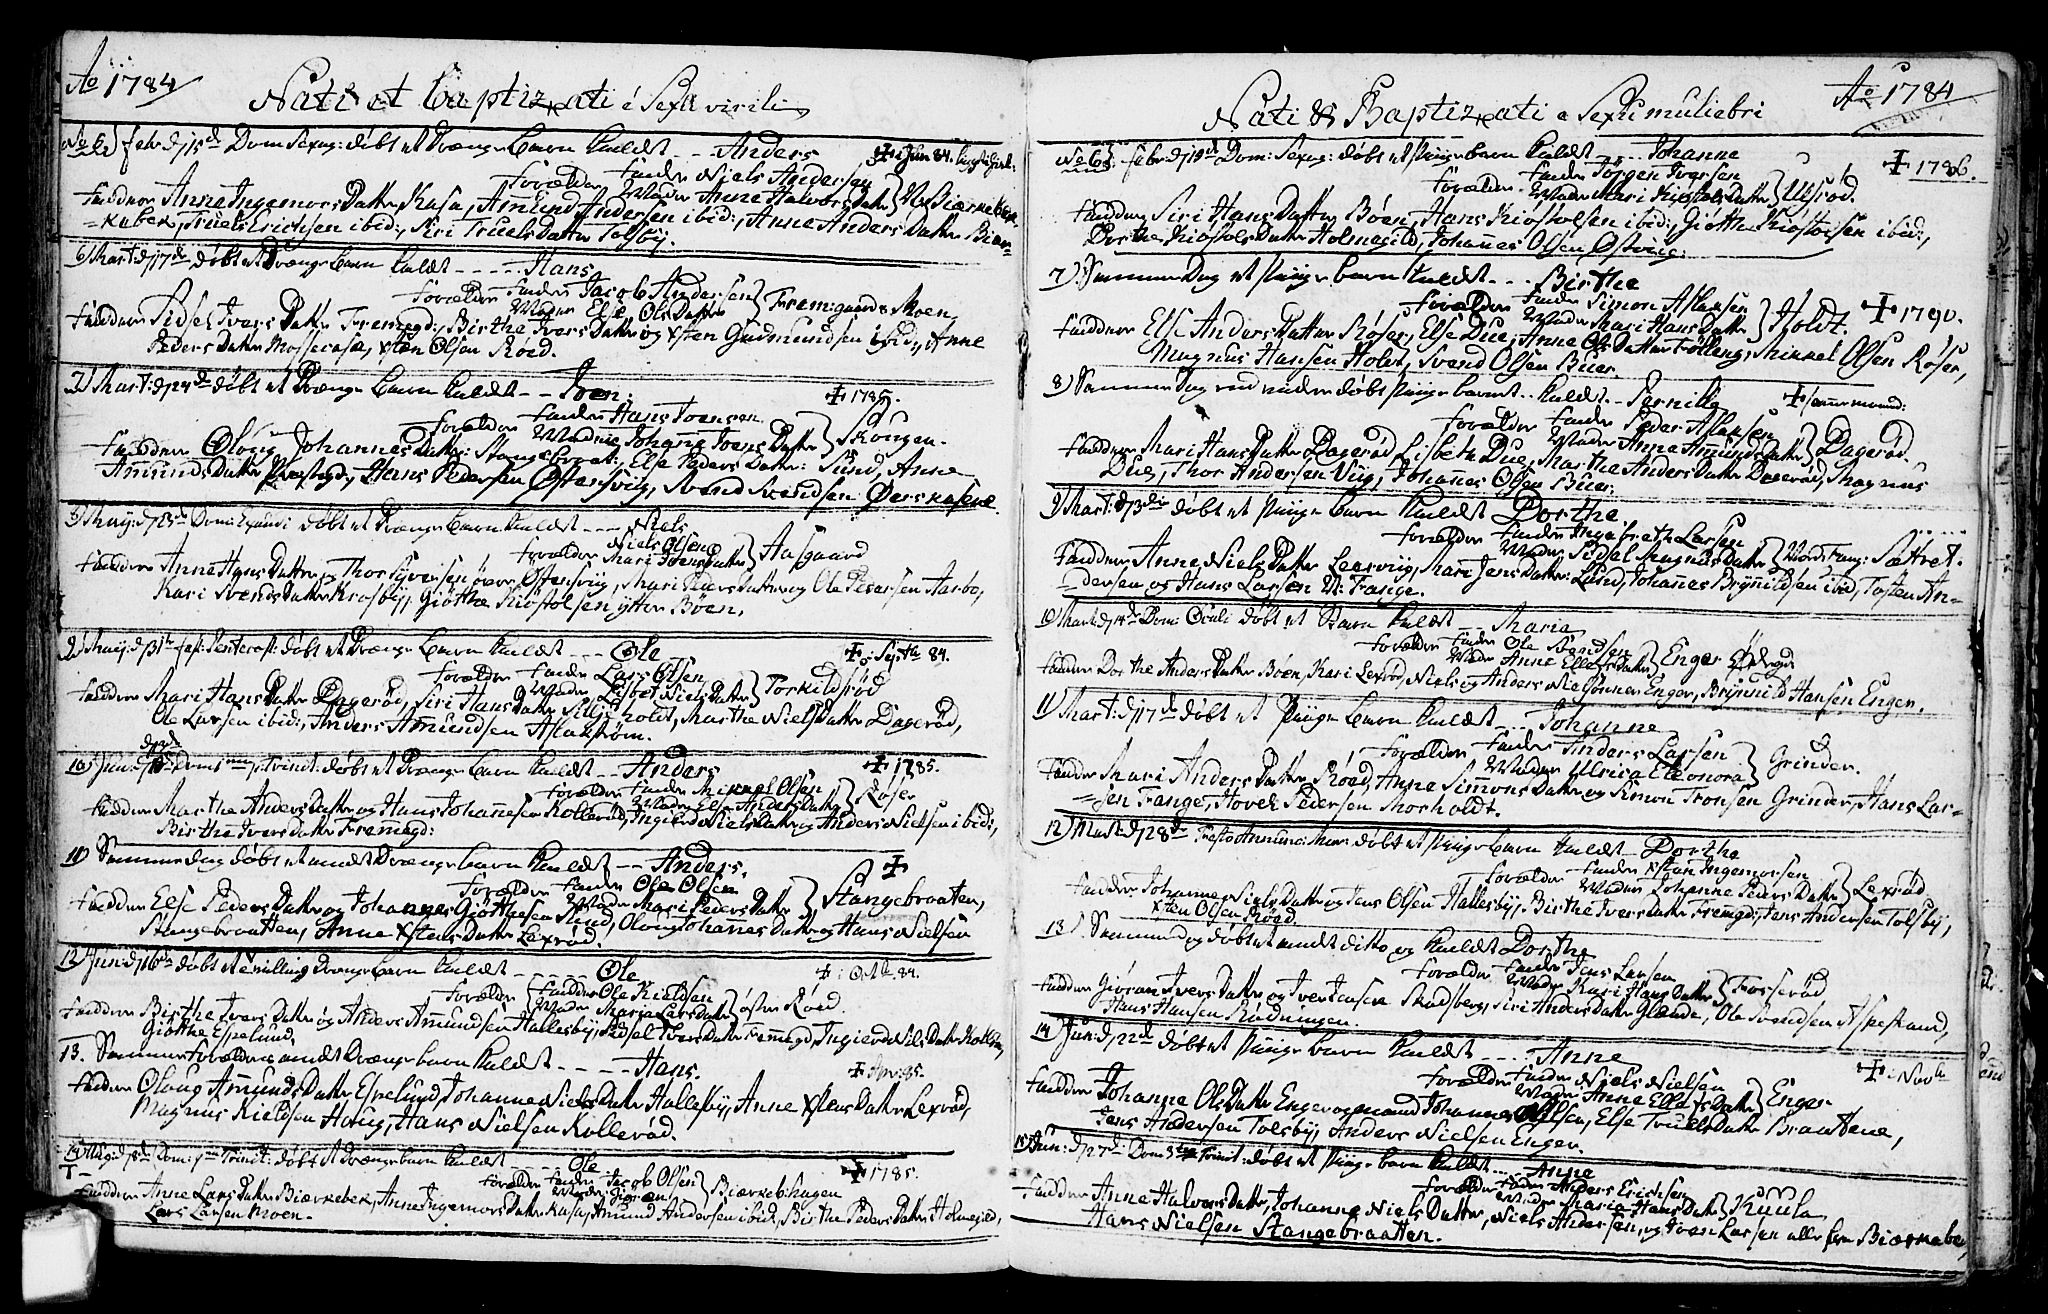 Ao 1784
Nati et Baptizati é Sexu virili
No 6) Febr: d 15de Dom Sexag: döbt et Drænge Barn kaldet --- Anders
Forældre Fader Niels Andersen Moder Anne HalvorsDatter
Faddere Anne IngemorsDatter Kasa, Amund Andersen ibid:, Anne AndersDatter Biær-
=kebek, Truels Erichsen ibid:, Siri TruelsDatter Tolsby.
6) Mart: d 17de döbt et Drænge Barn kaldet ----- Hans
Forældre Fader Jacob Andersen Moder Else OlsDatter
Faddere Sidsel IversDatter Fremegd:, Birthe IversDatter og Xsten Gudmundsen ibid:, Anne
PedersDatter, Xsten Olsen Röed.
7) Mart: d 24de döbt et Drænge Barn kaldet -- Joen. + 1785.
Forældre Fader Hans Joensen Moder Johane JoensDatter } Skougen.
Faddere Oloug JohannesDatter Stangebroet:, Else PedersDatter: Sund, Anne
AmundsDatter, Hans Pedersen Östensviig, Svend Svendsen
Maij: d 23de Dom: Exaudi döbt et Drænge Barn kaldet ---- Niels
Forældre Niels Olsen Mari JoensDatter } Aasgaard
Faddere Anne HansDatter, Thor Syversen övre Östensviig, Mari PedersDatter og Ole Pedersen Aasbo,
Kari SvendsDatter Krosby, Giöthe Kiöstolsen ytter Böen,
9) Maij: d 31te fest: Pentecost: döbt et Drænge Barn kaldet --- Ole + 84.
Forældre Fader Lars Olsen Moder Lisbet NielsDatter } Torkildsröd
Faddere Mari HansDatter Dageröd, Siri HansDatter Siljeholdt, Marthe NielsDatter Dageröd,
Ole Larsen ibid:, Anders Amundsen Aslakstrom.
10) Jun: Dom 1me p: Trinit: döbt et Drænge Barn kaldet -- Anders + 1785.
Forældre Fader Mickel Olsen Moder Else AndersDatter } Röser
Faddere Marthe AndersDatter og Hans Johannesen Kolleröd, Ingierd NielsDatter og Anders Nielsen ibid:,
Birthe IversDatter Fremegd:
11) Samme dag döbt et andet Drænge barn kaldet -- Anders. +
Forældre Fader Ole Olsen Moder Mari PedersDatter } Stangebraaten,
Faddere Else PedersDatter og Johannes Giöthesen Sund, Oloug JohannesDatter og Hans Nielsen
Stangebraatten, Anne XstensDatter Lexröd.
12) Jun: d 16de döbt et Tvilling Drænge barn kaldet ----- Ole + Octbr 84.
Forældre Fader Ole Kieldsen Moder Maria LarsDatter } östre Röed.
Faddere Birthe IversDatter og Anders Amundsen Hallesby, Sidsel IversDatter Fremegd, Ingierd NielsDatter
Giöthe Espelund.
13. Samme Forældres andet Drænge barn kaldet ----- Hans. + Apr: 85.
Faddere Oloug AmundsDatter Espelund, Johanne NielsDatter Hallesby, Anne XstensDatter Lexröd,
Magnus Kieldsen Houg, Hans Nielsen Kolleröd.
14) Dom: Trinit: döbt et Drænge barn kaldet ------ Ole + 1785.
Forældre Fader Jacob Olsen Moder Giöran } Biærkebihagen
Faddere Anne LarsDatter Biærkebek, Anne IngemorsDatter Kasa, Amund Andersen ibid:, Birthe PedersDatter Holmegild,
Lars Larsen Moen.
Ao 1784
Nati & Baptizati e Sexu muliebri
No 6) Febr: d 15de Dom: Sexag: döbt et Piige barn kaldet ---- Johanne + 1786.
Forældre Fader Jörgen Iversen Moder Mari KiöstolsDatter } Ulsröd.
Faddere Siri HansDatter Böen, Hans Kiöstolsen ibid:, Giöthe Kiöstolsen ibid:,
Dorthe KiöstolsDatter Holmegild, Johannes Olsen Östviig.
7) Samme Dag et Piige barn kaldet --- Birthe
Forældre Fader Simon Aslaksen Moder Mari HansDatter } Holdt. + 1790.
Faddere Else AndersDatter Röser, Else Due, Anne OlsDatter Trölleng, Mickel Olsen Röser,
Magnus Hansen Holdt, Svend Olsen Buer.
8) Samme Dag döbt Piige barn kaldet -- Pernille
Forældre Fader Peder Aslaksen Moder Anne AmundsDatter } Dageröd.
Faddere Mari HansDatter Dageröd Lisbeth Due, Marthe AndersDatter Dageröd, Magnus
Due, Thor Andersen Viig, Johannes Olsen Buer.
9) Mart: d 3die döbt et Piige barn kaldet Dorthe
Forældre Fader Ingebreth Larsen Moder Sidsel MagnusDatter } Sætret.
Faddere Anne NielsDatter Leerviig, Mari JensDatter: Lund, Johannes Brynildsen ibid, Tosten An-
=dersen og Hans Larsen N: Fange.
10) Mart: d 14de Dom: Oculi döbt et Barn kaldet -- Maria
Forældre Fader Ole Svendsen Moder Anne EllefsDatter } Enger
Faddere Dorthe AndersDatter Böen, Kari Lexröd, Niels og Anders Nielsönner Enger, Brynild Hansen Engen.
11) Mart: d 17de döbt et Piige barn kaldet --- Johanne
Forældre Fader Anders Larsen Moder Ulrica Eleonora } Grinder.
Faddere Mari AndersDatter Röed, Anne SimonsDatter og Simon Tronsen Grinder, Hans Lar-
=sen Fange, Hovel Pedersen Morholdt.
12) Mart: d 28de Festo Annunc: Mar: döbt et Piige barn kaldet -- Dorthe
Forældre Fader Xstian Ingemorsen Moder Johanne PedersDatter } Lexröd.
Faddere Johanne NielsDatter og Jens Olsen Hallesby, Birthe IversDatter Fremegd:, Jens Andersen Tolsby,
Xsten Olsen Röed.
13. Samme dag döbt et andet ditto og kaldet Dorthe
Forældre Fader Jens Larsen Moder Kari HansDatter } Fosseröd
Faddere Giöran IversDatter og Iver Jensen Skadsberg, Siri AndersDatter Glænde, Ole Svendsen Aspestrand,
Hans Hansen Rödningen.
14) Jun: d 22de döbt et Piige barn kaldet ---- Anne + Novbr
Forældre Fader Niels Nielsen Moder Anne EllefsDatter } Enger
Faddere Johanne OlsDatter Enger og mand Johannes Olsen, Else TruelsDatter Braatene,
Jens Andersen Tolsby, Anders Nielsen Enger.
15) Jun: d 27de Dom 3tia Trinit: döbt et Piige barn kaldet --- Anne
Forældre Fader Anders Erichsen Moder Maria HansDatter } Kuula
Faddere Anne HalvorsDatter, Johanne NielsDatter, Niels Andersen, og Iver Larsen alle fra Biærkebe,
Hans Nielsen Stangebraatten.